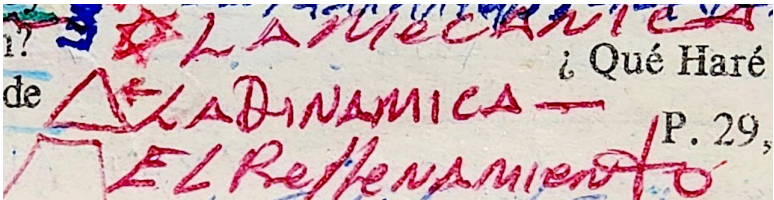 n? LA MECANICA
¿ Qué Haré
de LA DINAMICA —
P. 29,
EL Rellenamiento